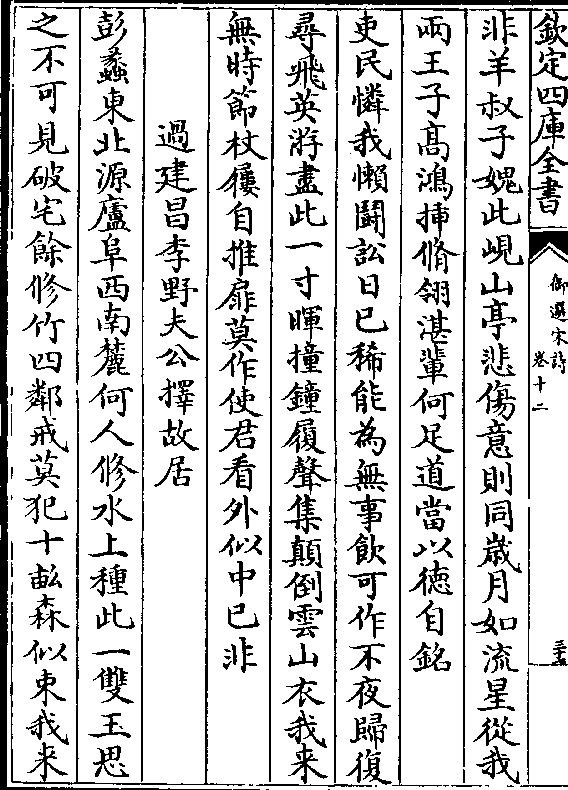 欽定四庫全書
御選宋詩
卷十二
三十五
非羊叔子媿此峴山亭悲傷意則同歲月如流星從我
兩王子高鴻插脩翎湛輩何足道當以德自銘
吏民憐我懶鬬訟日已稀能為無事飲可作不夜歸復
尋飛英游盡此一寸暉撞鐘履聲集顛倒雲山衣我来
無時節杖屨自推扉莫作使君看外似中已非
過建昌李野夫公擇故居
彭蠡東北源廬阜西南麓何人修水上種此一雙玉思
之不可見破宅餘修竹四鄰戒莫犯十畝森似束我来